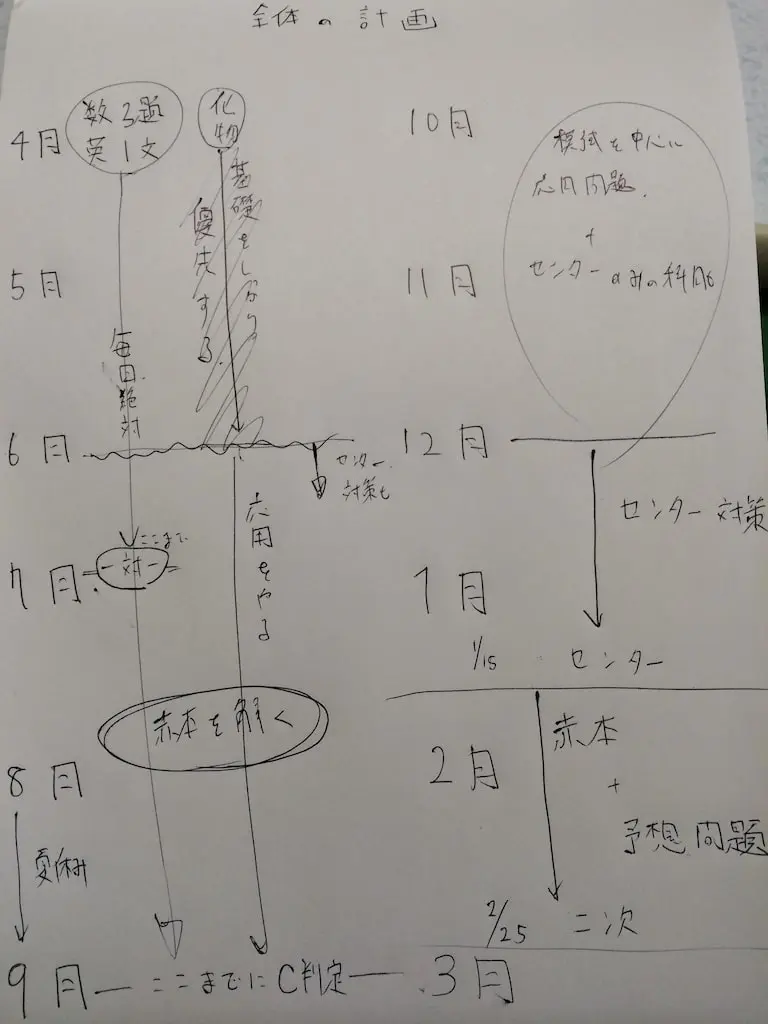 全体の計画
4月
数3題
英1文
化
物
基礎をしっかり
優先する
5月
毎日絶対
6月
センター
対策も
ここまで
7月
一対一
応用をやる
赤本を解く
8月
夏休み
9月 ― ここまでにC判定 ―
10月
模試を中心に
応用問題.
+
センターのみの科目も
11月
12月
センター対策
1月
1/15 センター
2月
赤本
+
予想問題
2/25 二次
3月